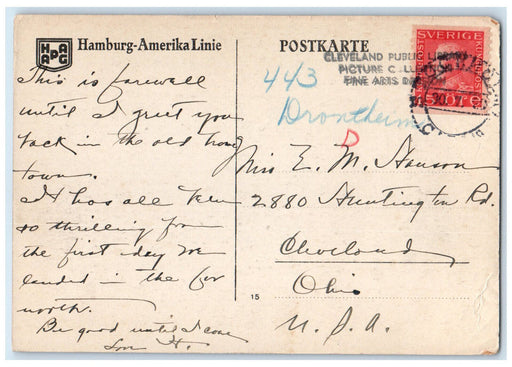 HAPAG
Hamburg-Amerika Linie
POSTKARTE
SVERIGE
CLEVELAND PUBLIC LIBRARY
PICTURE COLL
FINE ARTS D
443
Drontheim
D
This is farewell
until I greet you
back in the old home
town.
It has all been
so thrilling from
the first day we
landed in the far
north.
Be good until I come
Love H.
Miss E. M. Hanson
2880 Huntington Rd.
Cleveland
Ohio
U.S.A.
15